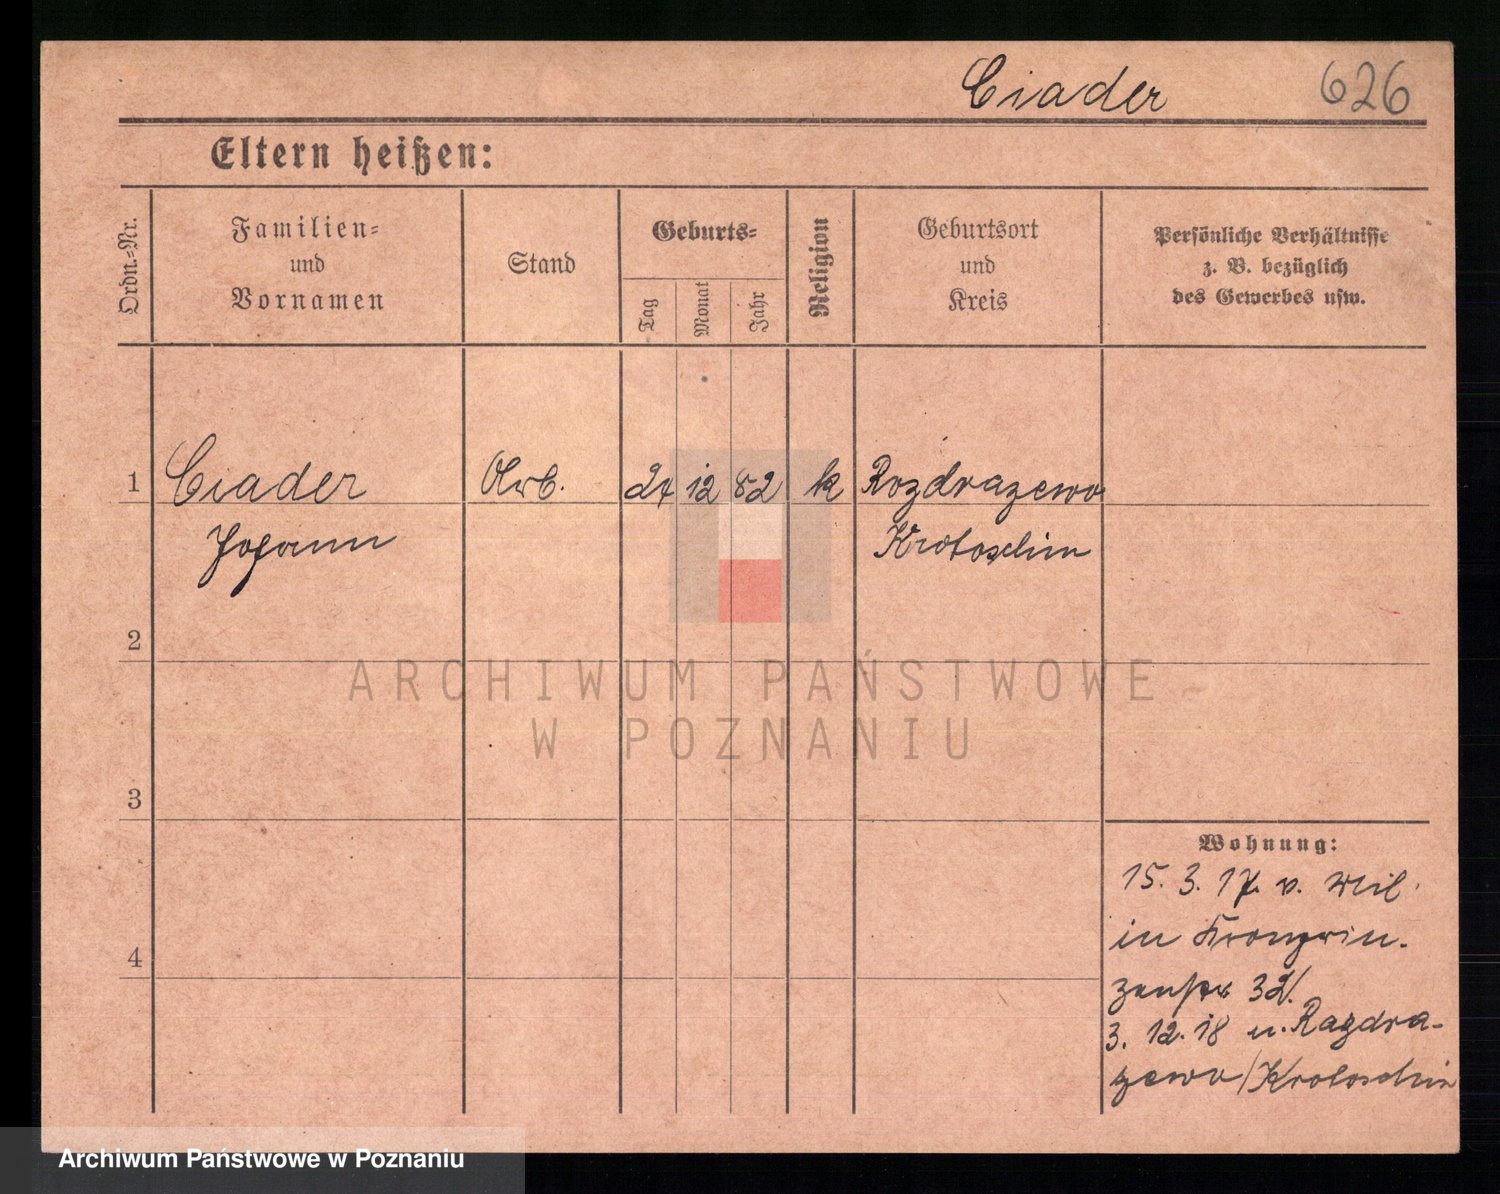 Ciader 626
Eltern heißen:
Ordn.-Nr.
Familien-
und
Vornamen
Stand
Geburts-
Tag
Monat
Jahr
Religion
Geburtsort
und
Kreis
Persönliche Verhältnisse
z. B. bezüglich
des Gewerbes usw.
1 Ciader Arb. 24 12 82 k Rozdrazewo
Johann Krotoschin
2
3
4
Wohnung:
15. 3. 17. v. Mil.
in Kronprin-
zenstr 32/.
3. 12. 18 n. Razdra-
zewo/Krotoschin
ARCHIWUM PAŃSTWOWE
W POZNANIU
Archiwum Państwowe w Poznaniu